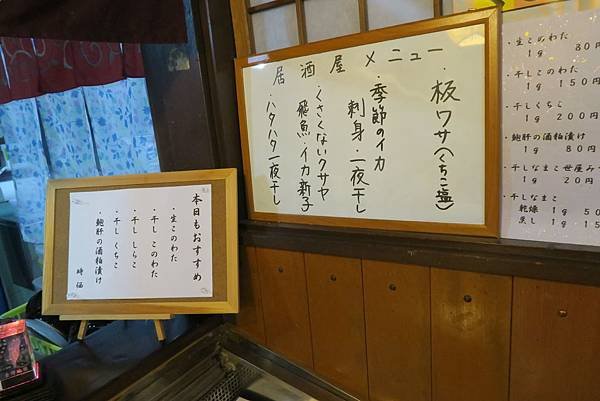 居酒屋メニュー
・板ワサ(くちこ塩)
・季節のイカ
刺身・一夜干し
・くさくないクサヤ
飛魚・イカ新子
・ハタハタ一夜干し
本日もおすすめ
・生このわた
・干しこのわた
・干ししらこ
・干しくちこ
・鮑肝の酒粕漬け
時価
・生このわた
1g 80円
・干しこのわた
1g 150円
・干しくちこ
1g 200円
・鮑肝の酒粕漬け
1g 80円
・干しなまこ
1g 20円
・干しなまこ
乾燥 1g 50
戻し 1g 15